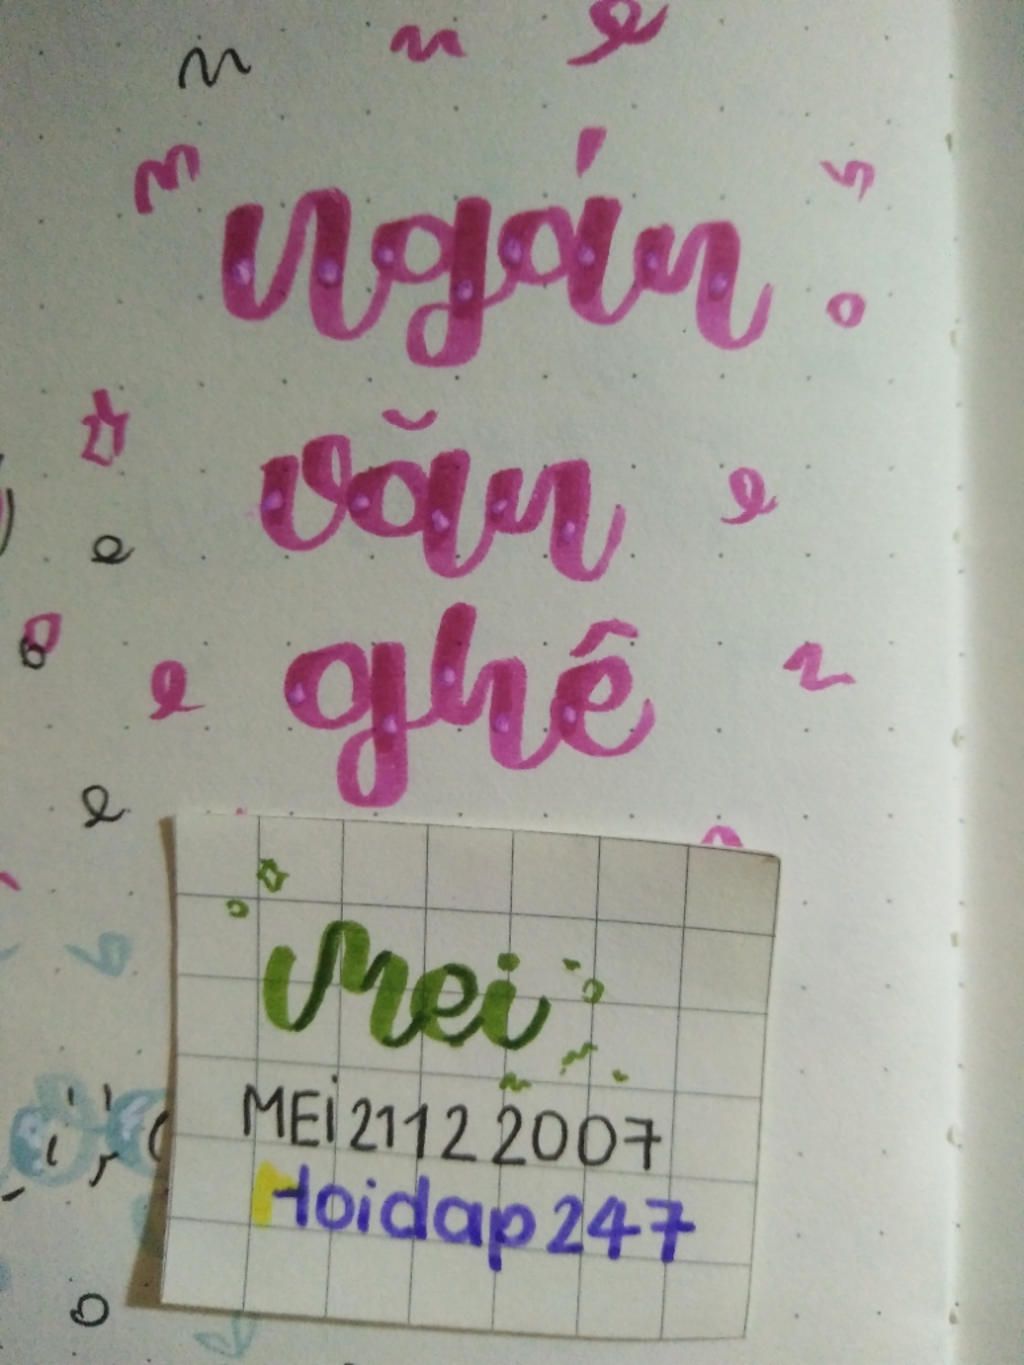 ngán
văn
ghê
Mei
MEi21122007
Hoidap247